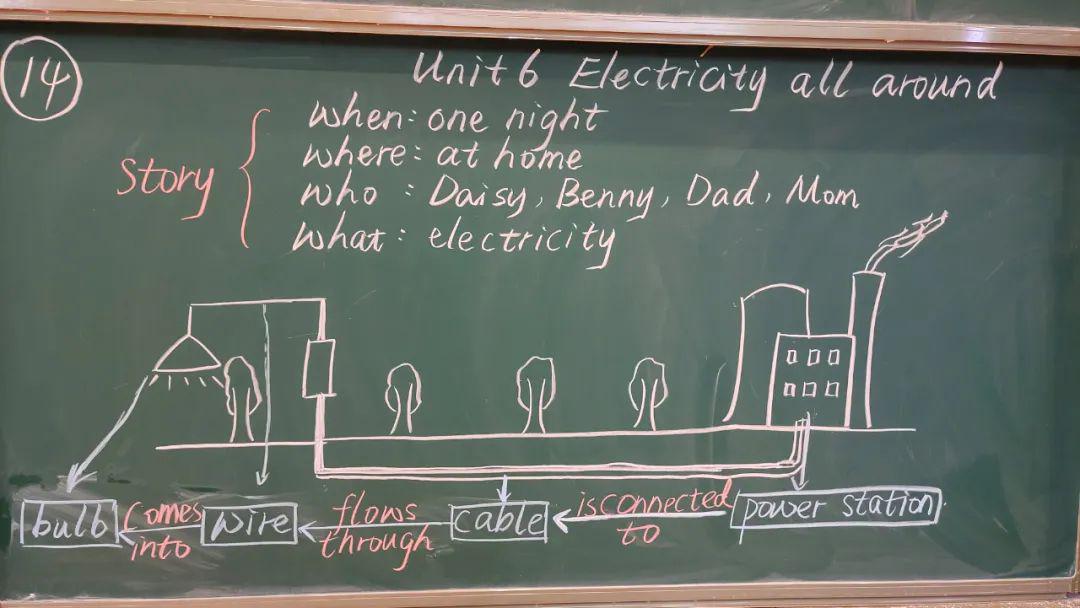 14
Unit 6 Electricity all around
Story
when: one night
where: at home
who : Daisy, Benny, Dad, Mom
what: electricity
bulb comes into wire flows through cable is connected to power station